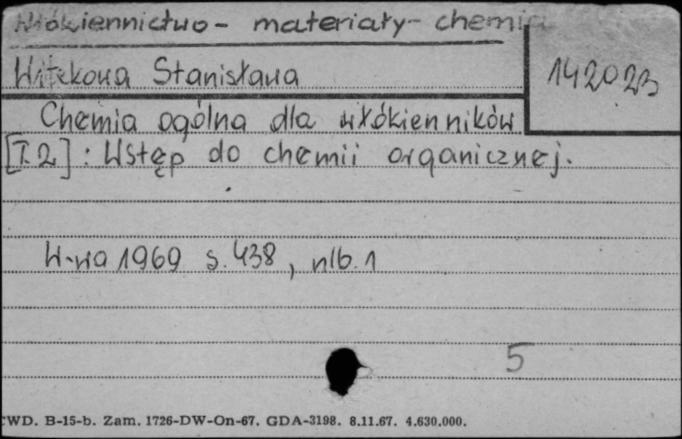 Włókiennictwo - materiały - chemia
Witekowa Stanisława
14202B
Chemia ogólna dla włókienników
[T.2] : Wstęp do chemii organicznej.
W-wa 1969 s. 438, nlb. 1
5
CWD. B-15-b. Zam. 1726-DW-On-67. GDA-3198. 8.11.67. 4.630.000.